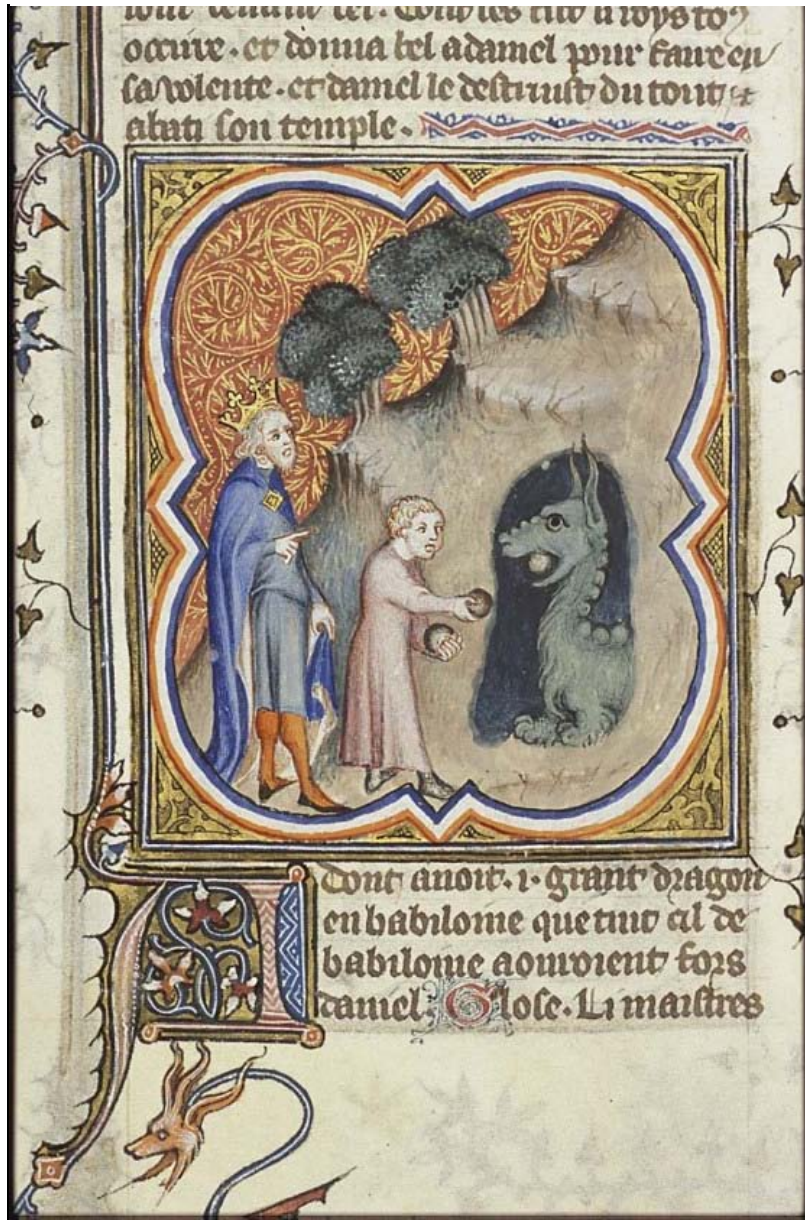 occire. et donna bel a daniel pour faire en
sa volente. et daniel le destruist du tout et
abati son temple.
Adont avoit .i. grant dragon
en babilonie que tuit cil de
babilonie aouroient fors
daniel. Glose. Li maistres